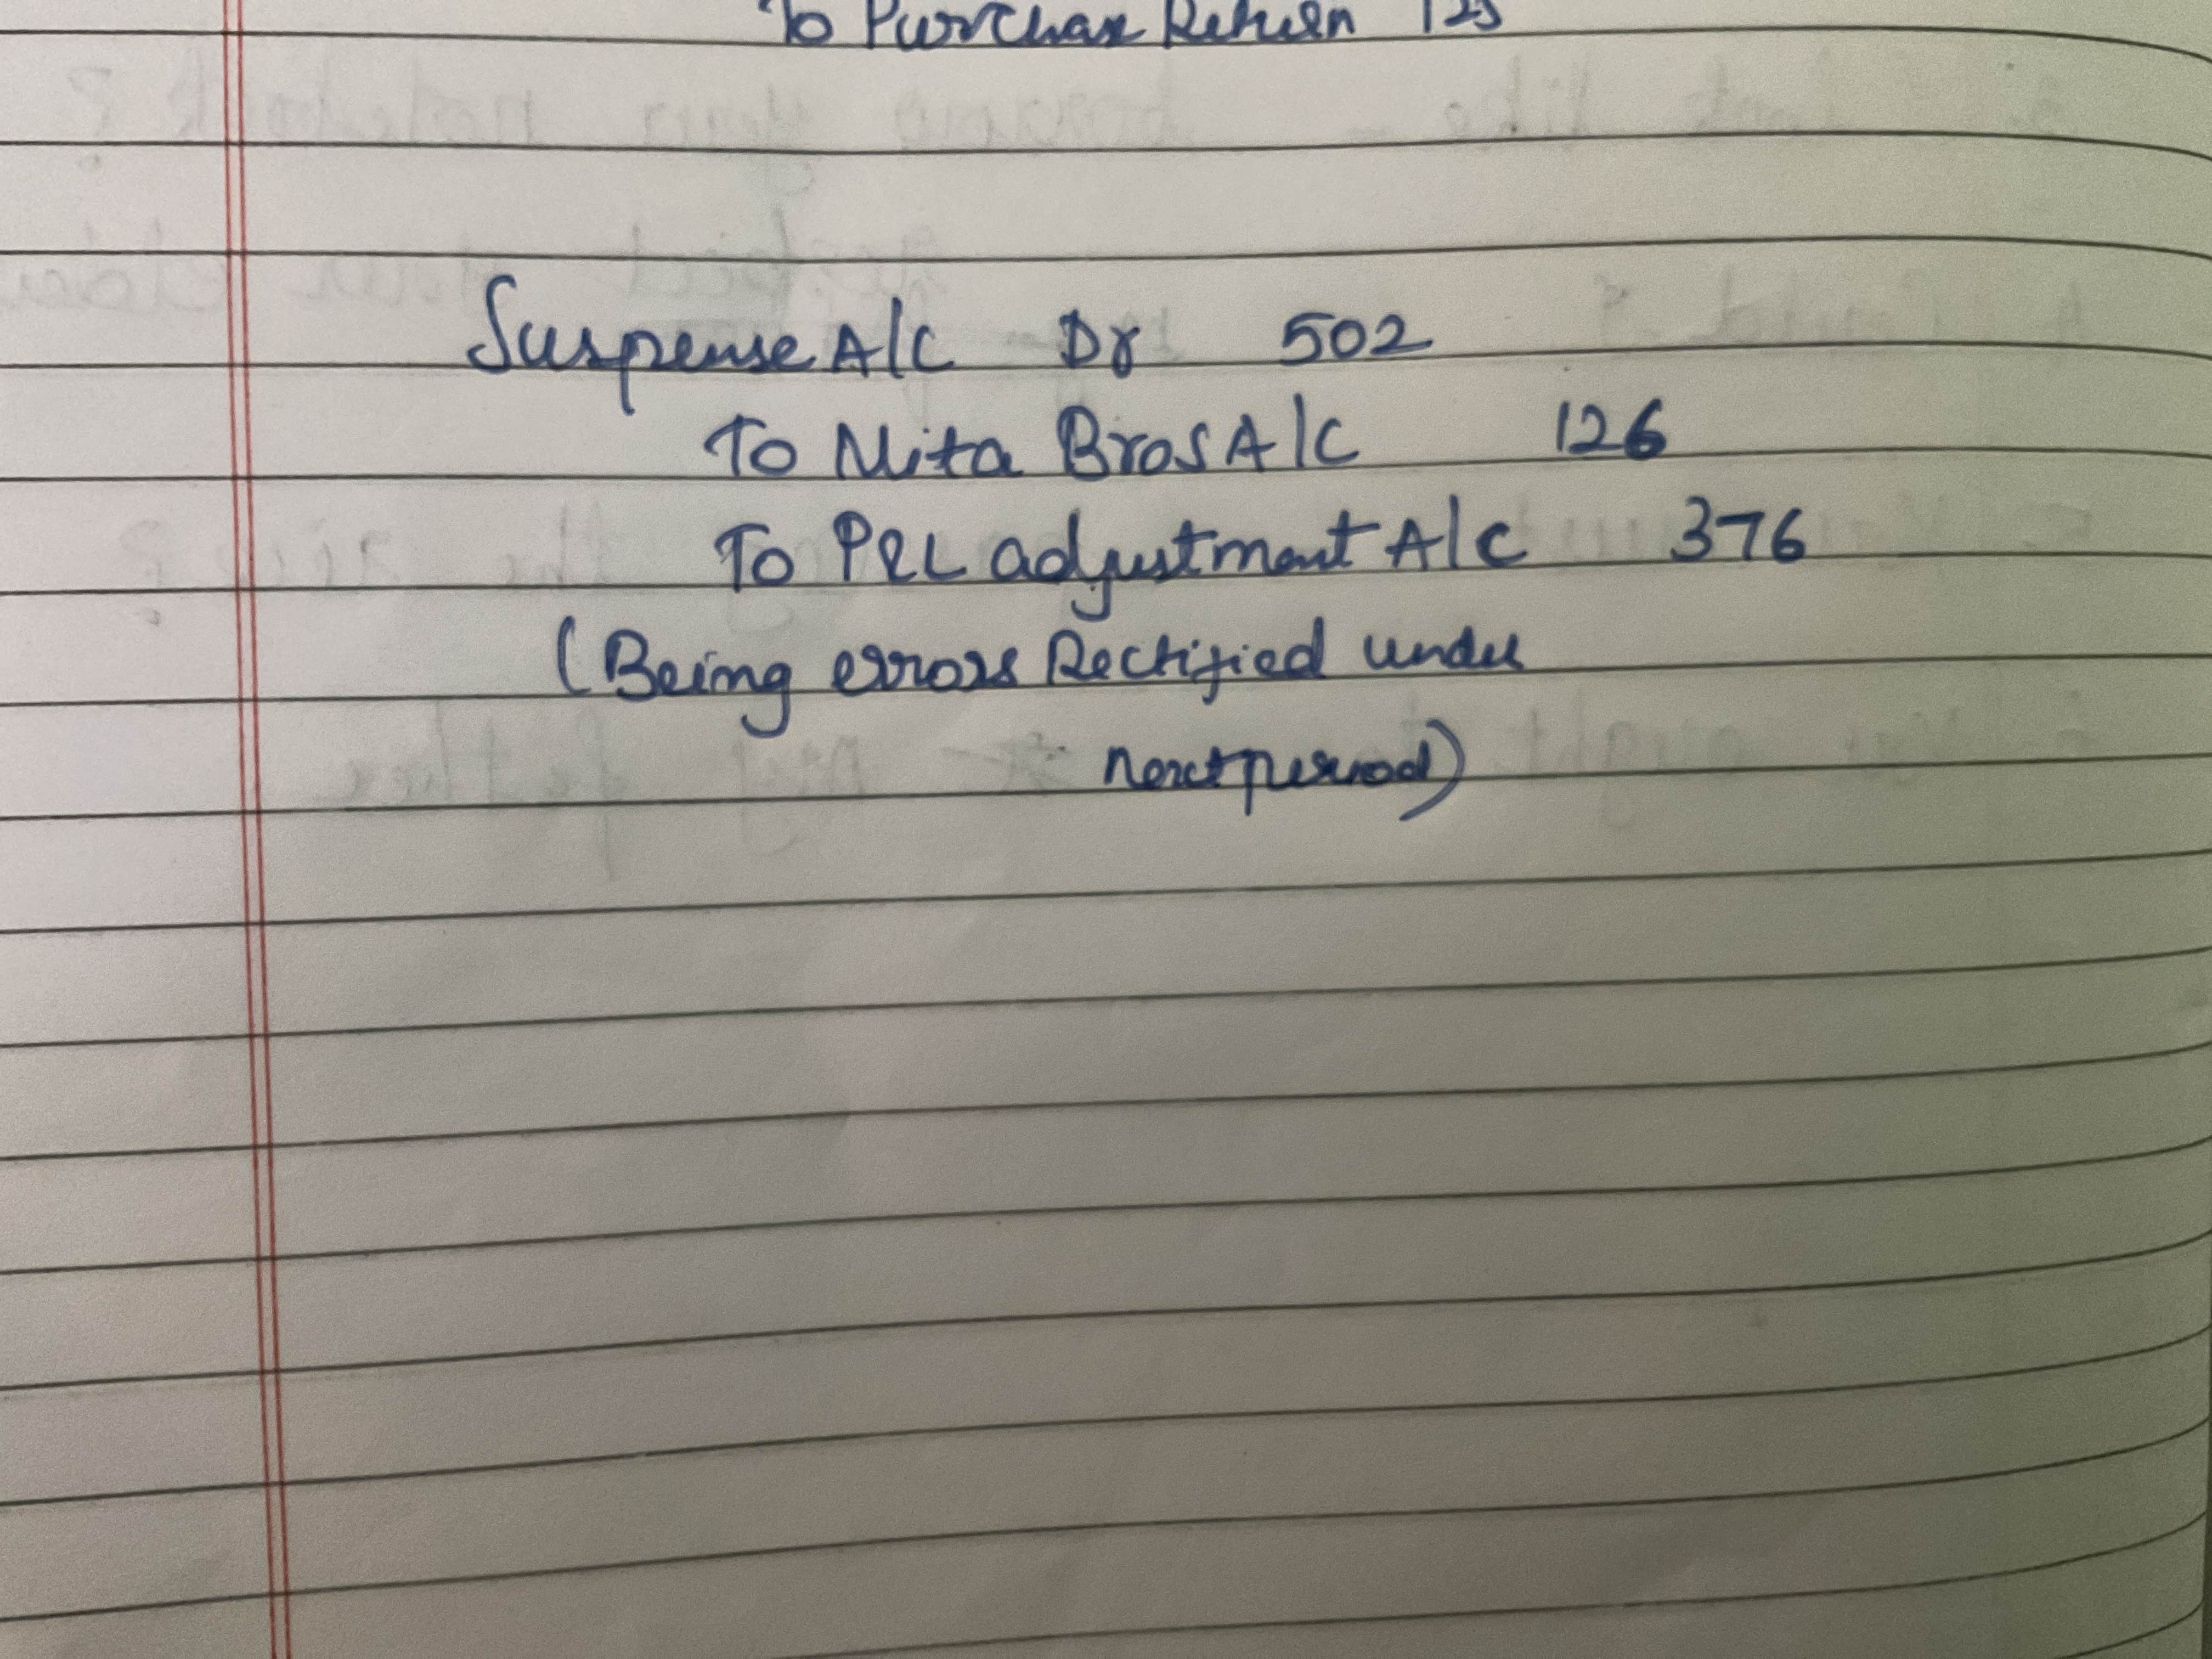 To Purchase Return 125
Suspense A/C Dr 502
To Mita Bros A/C 126
To P&L adjustment A/C 376
(Being errors Rectified under
next period)